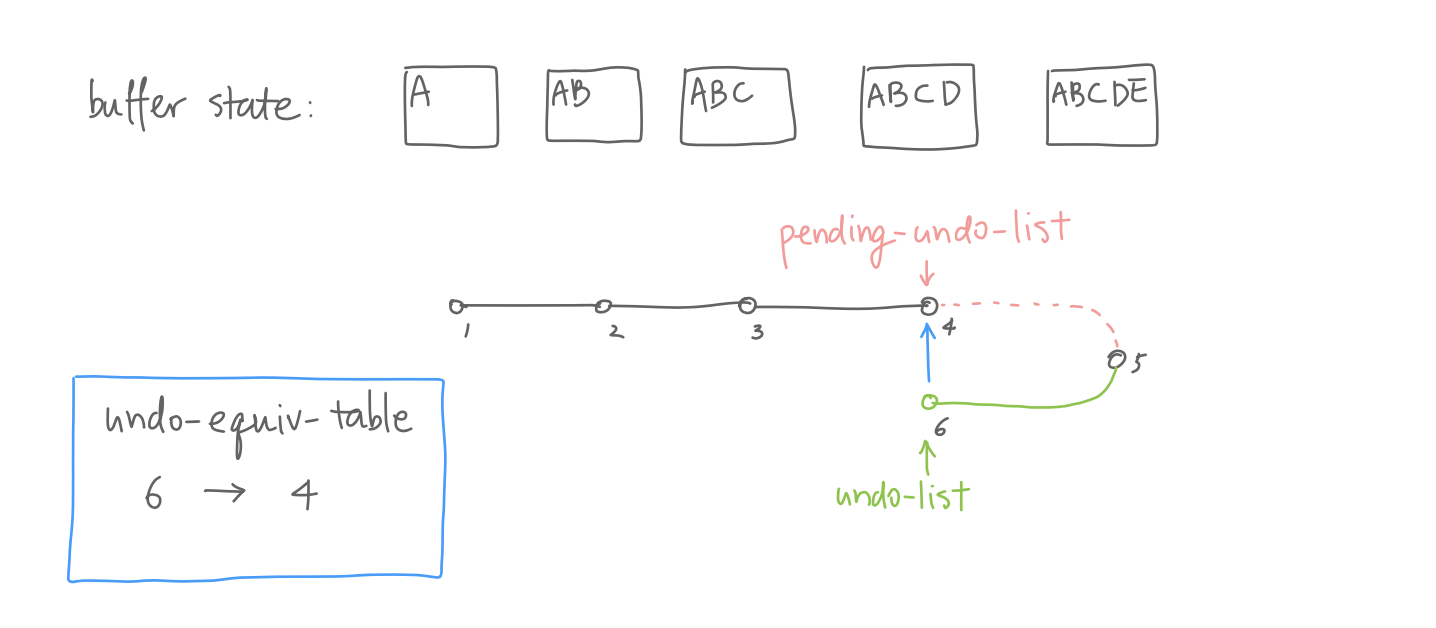 buffer state:
A
AB
ABC
ABCD
ABCDE
pending-undo-list
1
2
3
4
5
6
undo-list
undo-equiv-table
6 → 4